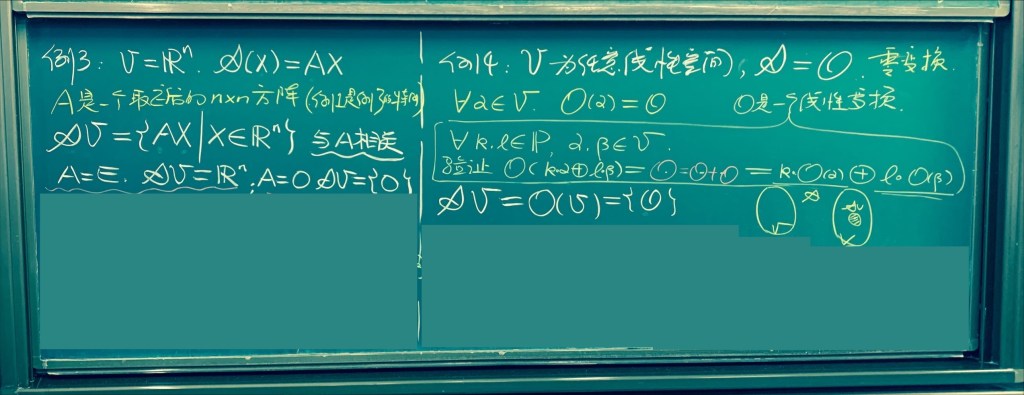 例3: V=ℝⁿ. 𝒜(X)=AX
A是一个取定后的n×n方阵(例1是例3的特例)
𝒜V={AX|X∈ℝⁿ} 与A相关
A=E. 𝒜V=ℝⁿ; A=0 𝒜V={0}
例4: V为任意(线性空间), 𝒜=O. 零变换.
∀α∈V. O(α)=0 O是一个线性变换.
∀k.l∈ℙ, α.β∈V.
验证 O(k∘α⊕l∘β)=0=0+0=k∘O(α)⊕l∘O(β)
𝒜V=O(V)={0}
V 𝒜 𝒜V V